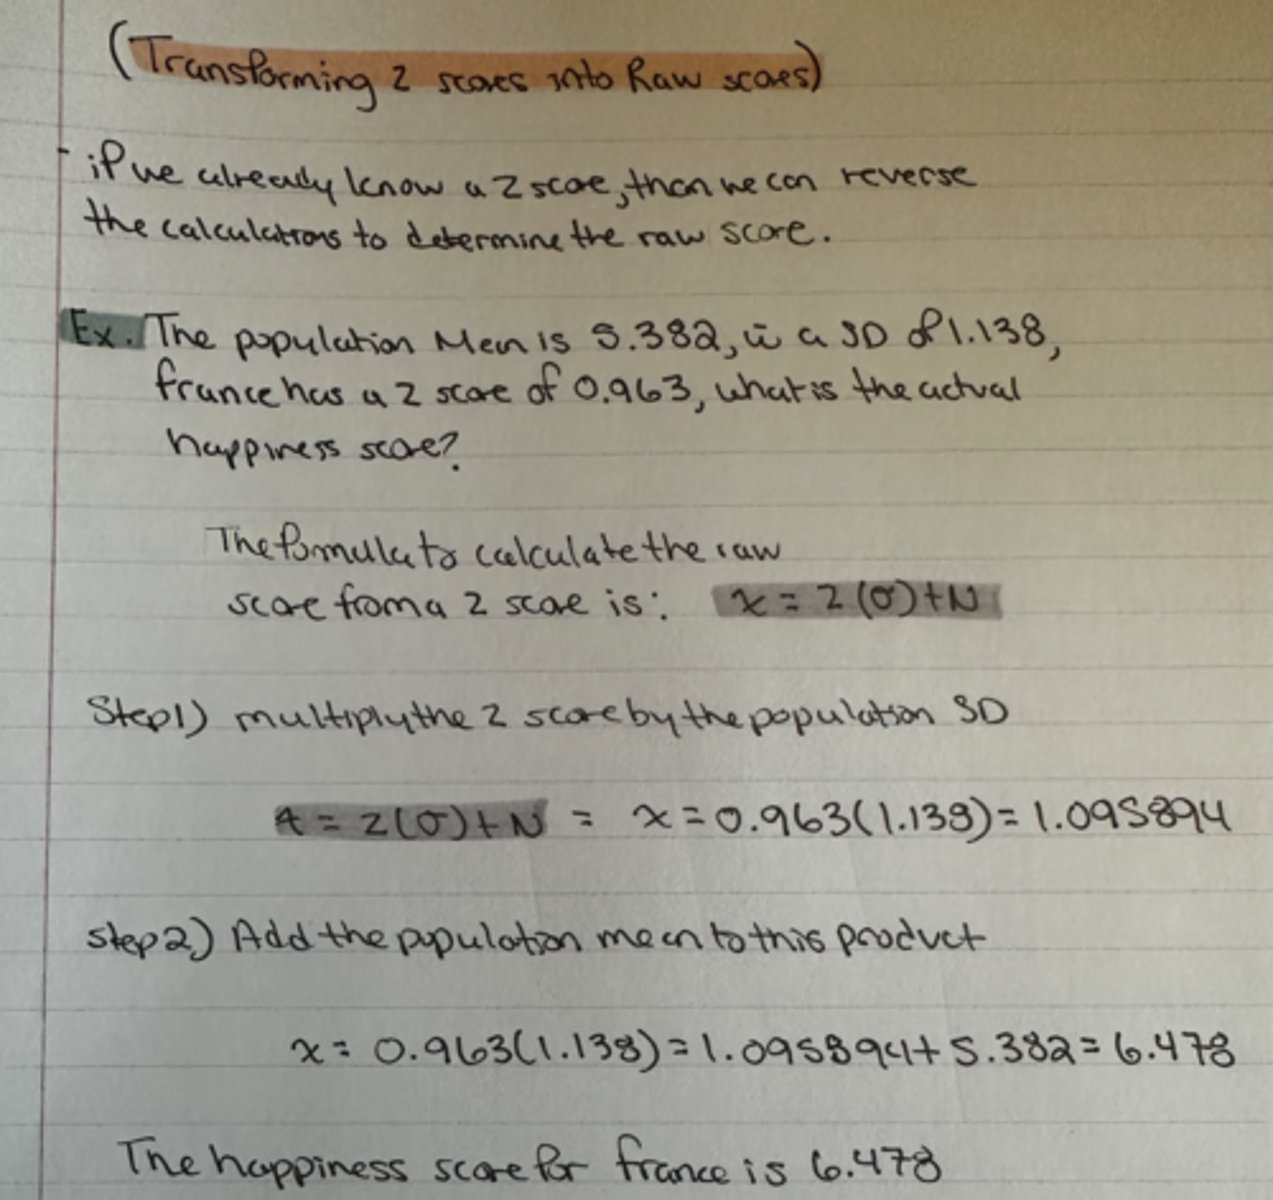 (Transforming z scores into Raw scores)
- if we already know a z score, then we can reverse
the calculations to determine the raw score.
Ex. The population Mean is 5.382, w̄ a SD of 1.138,
france has a z score of 0.963, what is the actual
happiness score?
The formula to calculate the raw
score from a z score is: x = z(σ)+N
Step 1) multiply the z score by the population SD
x = z(σ)+N = x = 0.963(1.138) = 1.095894
step 2) Add the population mean to this product
x = 0.963(1.138) = 1.095894 + 5.382 = 6.478
The happiness score for france is 6.478